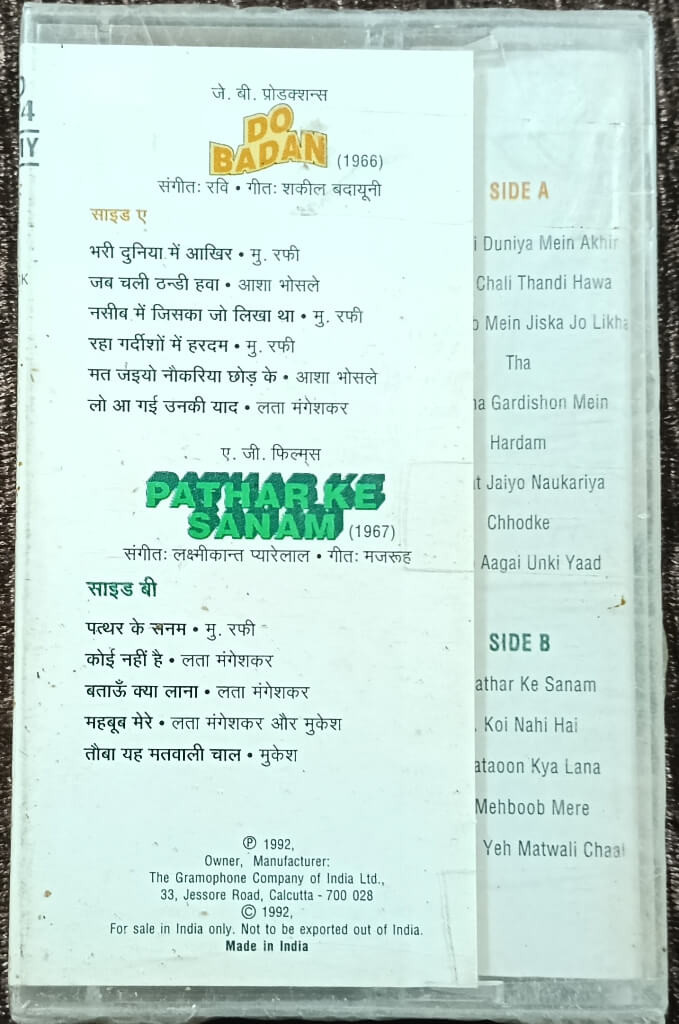 जे. बी. प्रोडक्शन्स
DO
BADAN (1966)
संगीतः रवि • गीतः शकील बदायूनी
साइड ए
भरी दुनिया में आखिर • मु. रफी
जब चली ठन्डी हवा • आशा भोसले
नसीब में जिसका जो लिखा था • मु. रफी
रहा गर्दीशों में हरदम • मु. रफी
मत जइयो नौकरिया छोड़ के • आशा भोसले
लो आ गई उनकी याद • लता मंगेशकर
ए. जी. फिल्म्स
PATHAR KE
SANAM (1967)
संगीतः लक्ष्मीकान्त प्यारेलाल • गीतः मजरूह
साइड बी
पत्थर के सनम • मु. रफी
कोई नहीं है • लता मंगेशकर
बताऊँ क्या लाना • लता मंगेशकर
महबूब मेरे • लता मंगेशकर और मुकेश
तौबा यह मतवाली चाल • मुकेश
Ⓟ 1992,
Owner, Manufacturer:
The Gramophone Company of India Ltd.,
33, Jessore Road, Calcutta - 700 028
© 1992,
For sale in India only. Not to be exported out of India.
Made in India
SIDE A
Duniya Mein Akhir
Chali Thandi Hawa
Mein Jiska Jo Likha
Tha
Gardishon Mein
Hardam
Jaiyo Naukariya
Chhodke
Aagai Unki Yaad
SIDE B
athar Ke Sanam
Koi Nahi Hai
ataoon Kya Lana
Mehboob Mere
Yeh Matwali Chaal